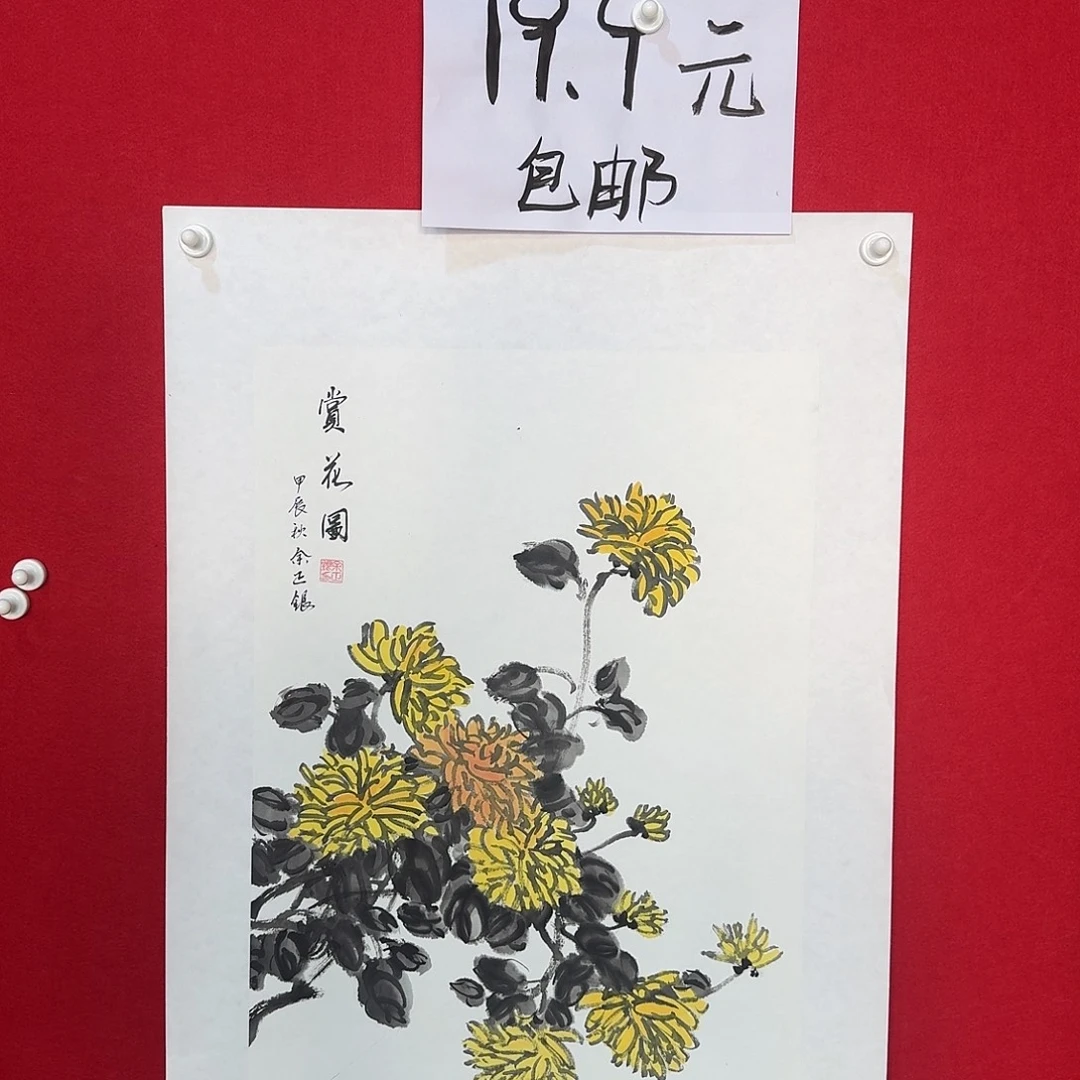 19.9元
包邮
賞花圖
甲辰秋余正銀